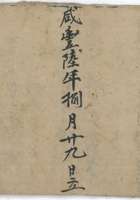 咸豐陸年捌月廿九日立